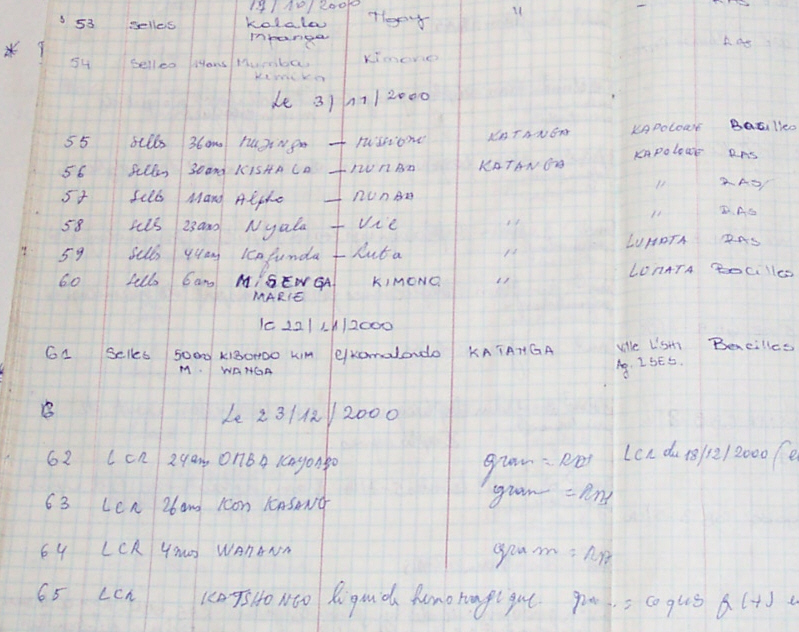 19/10/2000
53 Selles Kalala Ngoy " – RAS
Mpanga
54 Selles 14ans Mumba Kimono RAS
Kimika
Le 3/11/2000
55 Sells 36ans MUJINGA – KATANGA KAPOLOWE Bacilles
56 Selles 30ans KISHALA – MUMBA KATANGA KAPOLOWE RAS
57 Sells 11ans – MUMBA " RAS
58 Sells 23ans Nyala – " " RAS
59 Sells 44ans Kafunda – Luba " LUMATA RAS
60 Sells 6ans MISENGA KIMONO " LUMATA Bacilles
MARIE
le 22/11/2000
61 Selles 50ans KIBONDO KIM KATANGA Ville L'SHI Bacilles
M. WANGA Ag. ISES.
Le 23/12/2000
62 LCR 24ans OMBA KAYONGO gram = RAS LCR du 18/12/2000
63 LCR 26ans KON KASANG gram = RAS
64 LCR 4mois WAMANA gram = RAS
65 LCR KATSHONGO liquide hémoragique gram = coques g (+)